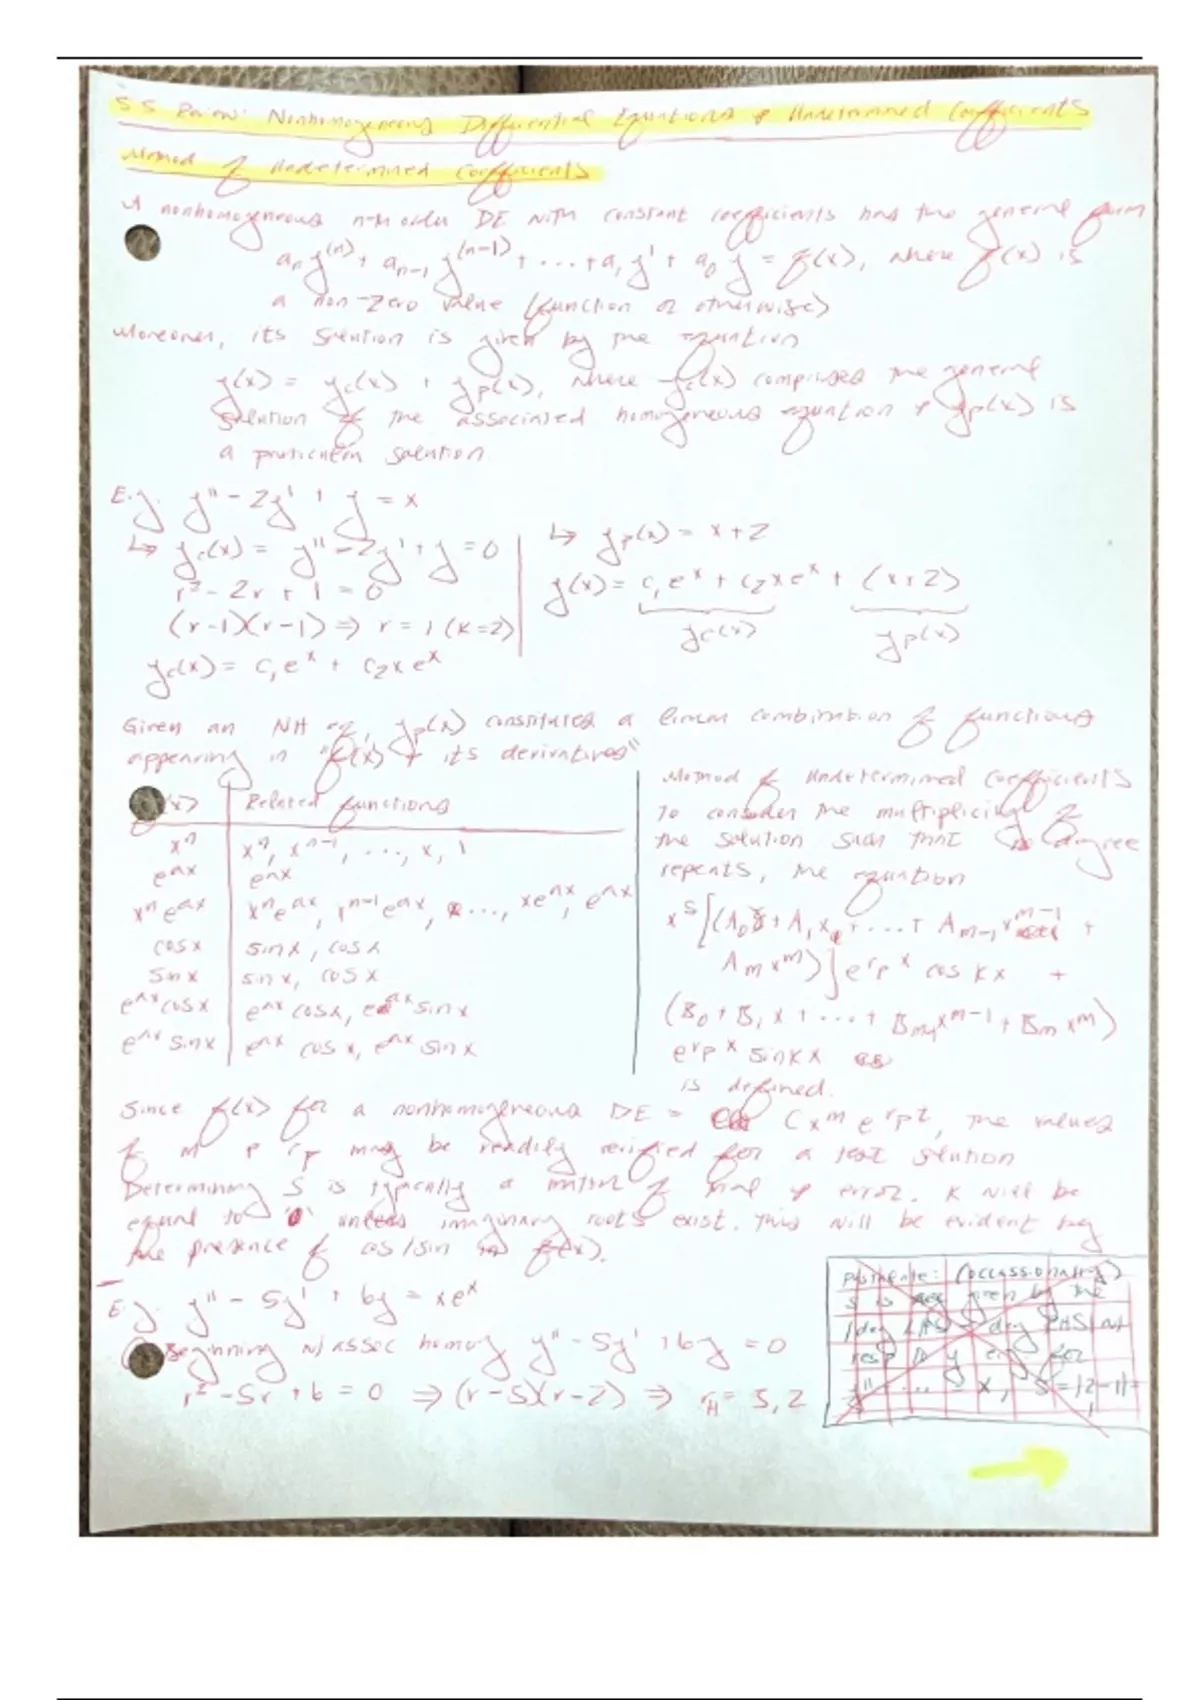 5.5 Review: Nonhomogeneous Differential Equations & Undetermined Coefficients
Method of Undetermined Coefficients
A nonhomogeneous n-th order DE with constant coefficients has the general form
aₙy⁽ⁿ⁾ + aₙ₋₁y⁽ⁿ⁻¹⁾ + ... + a₁y' + a₀y = f(x), where f(x) is
a non-zero value (function or otherwise)
Moreover, its solution is given by the equation
y(x) = yc(x) + yp(x), where yc(x) comprises the general
solution of the associated homogeneous equation & yp(x) is
a particular solution.
E.g. y'' - 2y' + y = x
↳ yc(x) = y'' - 2y' + y = 0
r² - 2r + 1 = 0
(r-1)(r-1) ⇒ r = 1 (k=2)
yc(x) = c₁eˣ + c₂xeˣ
↳ yp(x) = x+2
y(x) = c₁eˣ + c₂xeˣ + (x+2)
yc(x) yp(x)
Given an NH eq, yp(x) constitutes a linear combination of functions
appearing in "f(x) & its derivatives"
(x) | Related functions
xⁿ | xⁿ, xⁿ⁻¹, ..., x, 1
eᵃˣ | eᵃˣ
xⁿeᵃˣ | xⁿeᵃˣ, xⁿ⁻¹eᵃˣ, ..., xeᵃˣ, eᵃˣ
cosx | sinx, cosx
sinx | sinx, cosx
eᵃˣcosx | eᵃˣ cosx, eᵃˣ sinx
eᵃˣ sinx | eᵃˣ cosx, eᵃˣ sinx
Method of Undetermined Coefficients
To consider the multiplicity of
the solution such that no degree
repents, the equation
xˢ[(A₀ + A₁x + ... + Aₘ₋₁xᵐ⁻¹ +
Aₘxᵐ)]e^rp x cos kx +
(B₀ + B₁x + ... + Bₘ₋₁xᵐ⁻¹ + Bₘxᵐ)
e^rp x sin kx
is defined.
Since f(x) for a nonhomogeneous DE = Cxᵐ e^rp t, the values
of m & rp may be readily verified for a test solution
Determining S is typically a matter of trial & error. K will be
equal to '0' unless imaginary roots exist. This will be evident by
the presence of cos/sin in f(x).
E.g. y'' - 5y' + 6y = xeˣ
Beginning w/ assoc homog y'' - 5y' + 6y = 0
r² - 5r + 6 = 0 ⇒ (r-3)(r-2) ⇒ rH = 3, 2
(occassionally)
S is given by the
|deg LHS - deg RHS| w/
resp to y eg for
y'' ... = x, S = |2-1| =
1